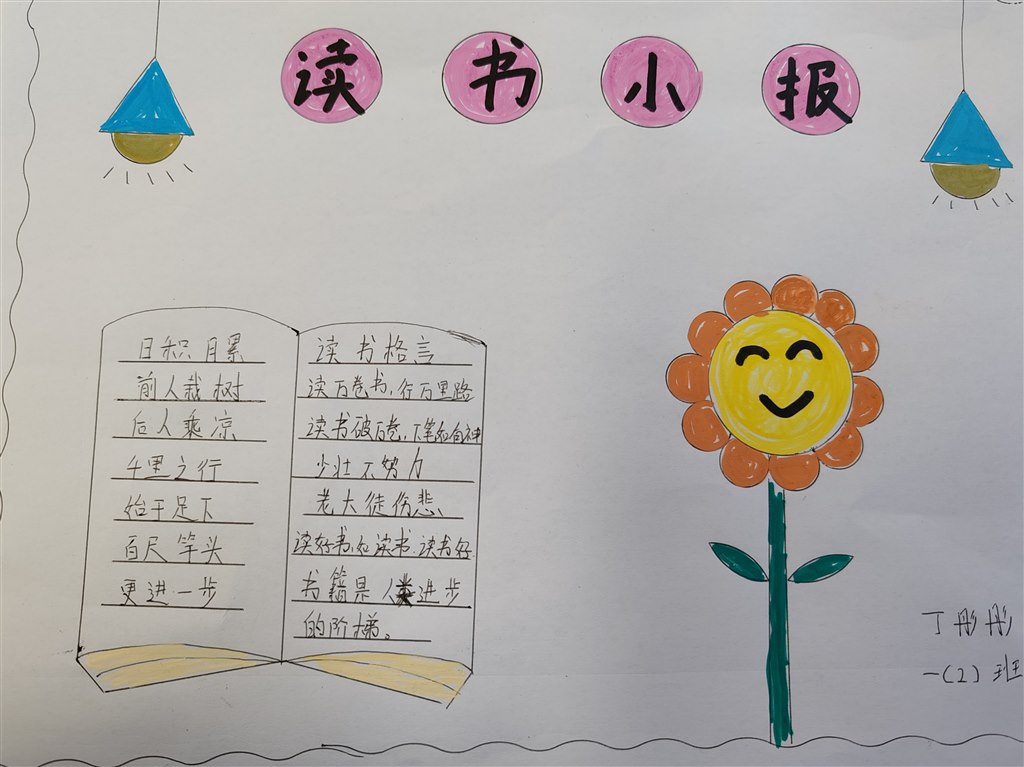 读书小报
日积月累
前人栽树
后人乘凉
千里之行
始于足下
百尺竿头
更进一步
读书格言
读万卷书，行万里路
读书破万卷，下笔如有神
少壮不努力
老大徒伤悲
读好书，好读书，读书好
书籍是人类进步
的阶梯。
丁彤彤
一（2）班